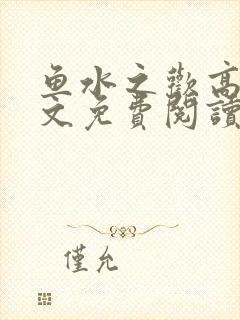 鱼水之歡高
文免費閱讀
僅允